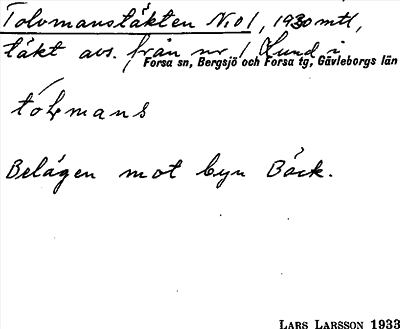 Tolvmanstäkten No 1, 1930 mtl,
täkt avs. från nr 1 Lund i
Forsa sn, Bergsjö och Forsa tg, Gävleborgs län
tólvmans
Belägen mot byn Bäck.
LARS LARSSON 1933